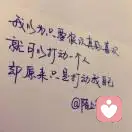 我以为只要很认真的喜欢
就可以打动一个人
却原来只是打动我自己
@陌上